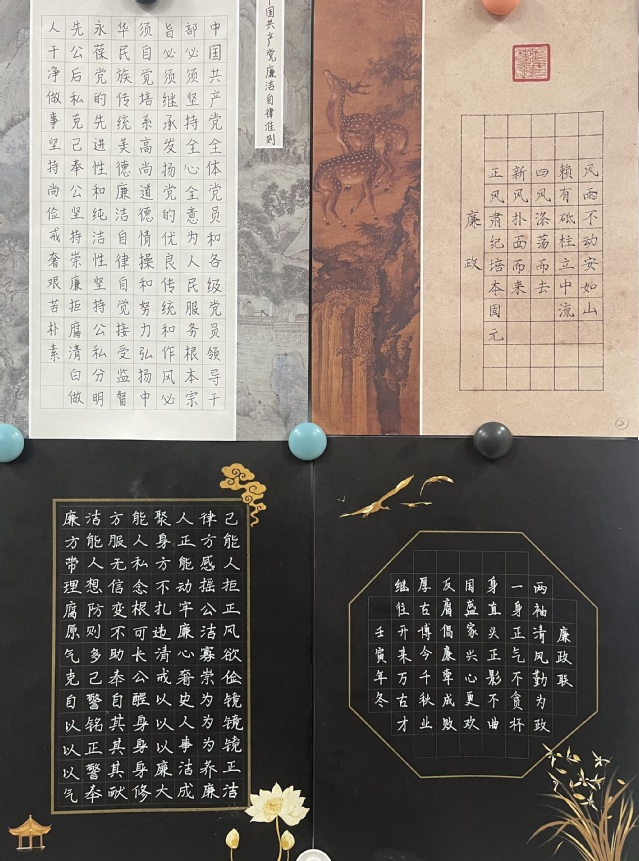 中国共产党廉洁自律准则
中国共产党全体党员和各级党员领导干
部必须坚持全心全意为人民服务根本宗
旨必须继承发扬党的优良传统和作风必
须自觉培系高尚道德情操和努力弘扬中
华民族传统美德廉洁自律自觉接受监督
永葆党的先进性和纯洁性坚持公私分明
先公后私克己奉公坚持崇廉拒腐清白做
人干净做事坚持尚俭戒奢艰苦朴素
风雨不动安如山
赖有砥柱立中流
四风涤荡而去
新风扑面而来
正风肃纪培本固元
廉政
廉洁方能聚人律己
方能服人身正方能
带人无私方能感人
理想信念不动摇拒
腐防变根扎牢公正
原则不可违廉洁风
气多助长清心寡欲
克己奉公戒奢崇俭
自警自醒以史为镜
以铭其身以人为镜
以正其身以事为镜
以警其身廉洁养正
气奉献修大成廉洁
廉政联
两袖清风勤为政
一身正气不贪杯
身直头正影不曲
国盛家兴心更欢
反腐倡廉牵成败
厚古博今千秋业
继往开来万古才
壬寅年冬